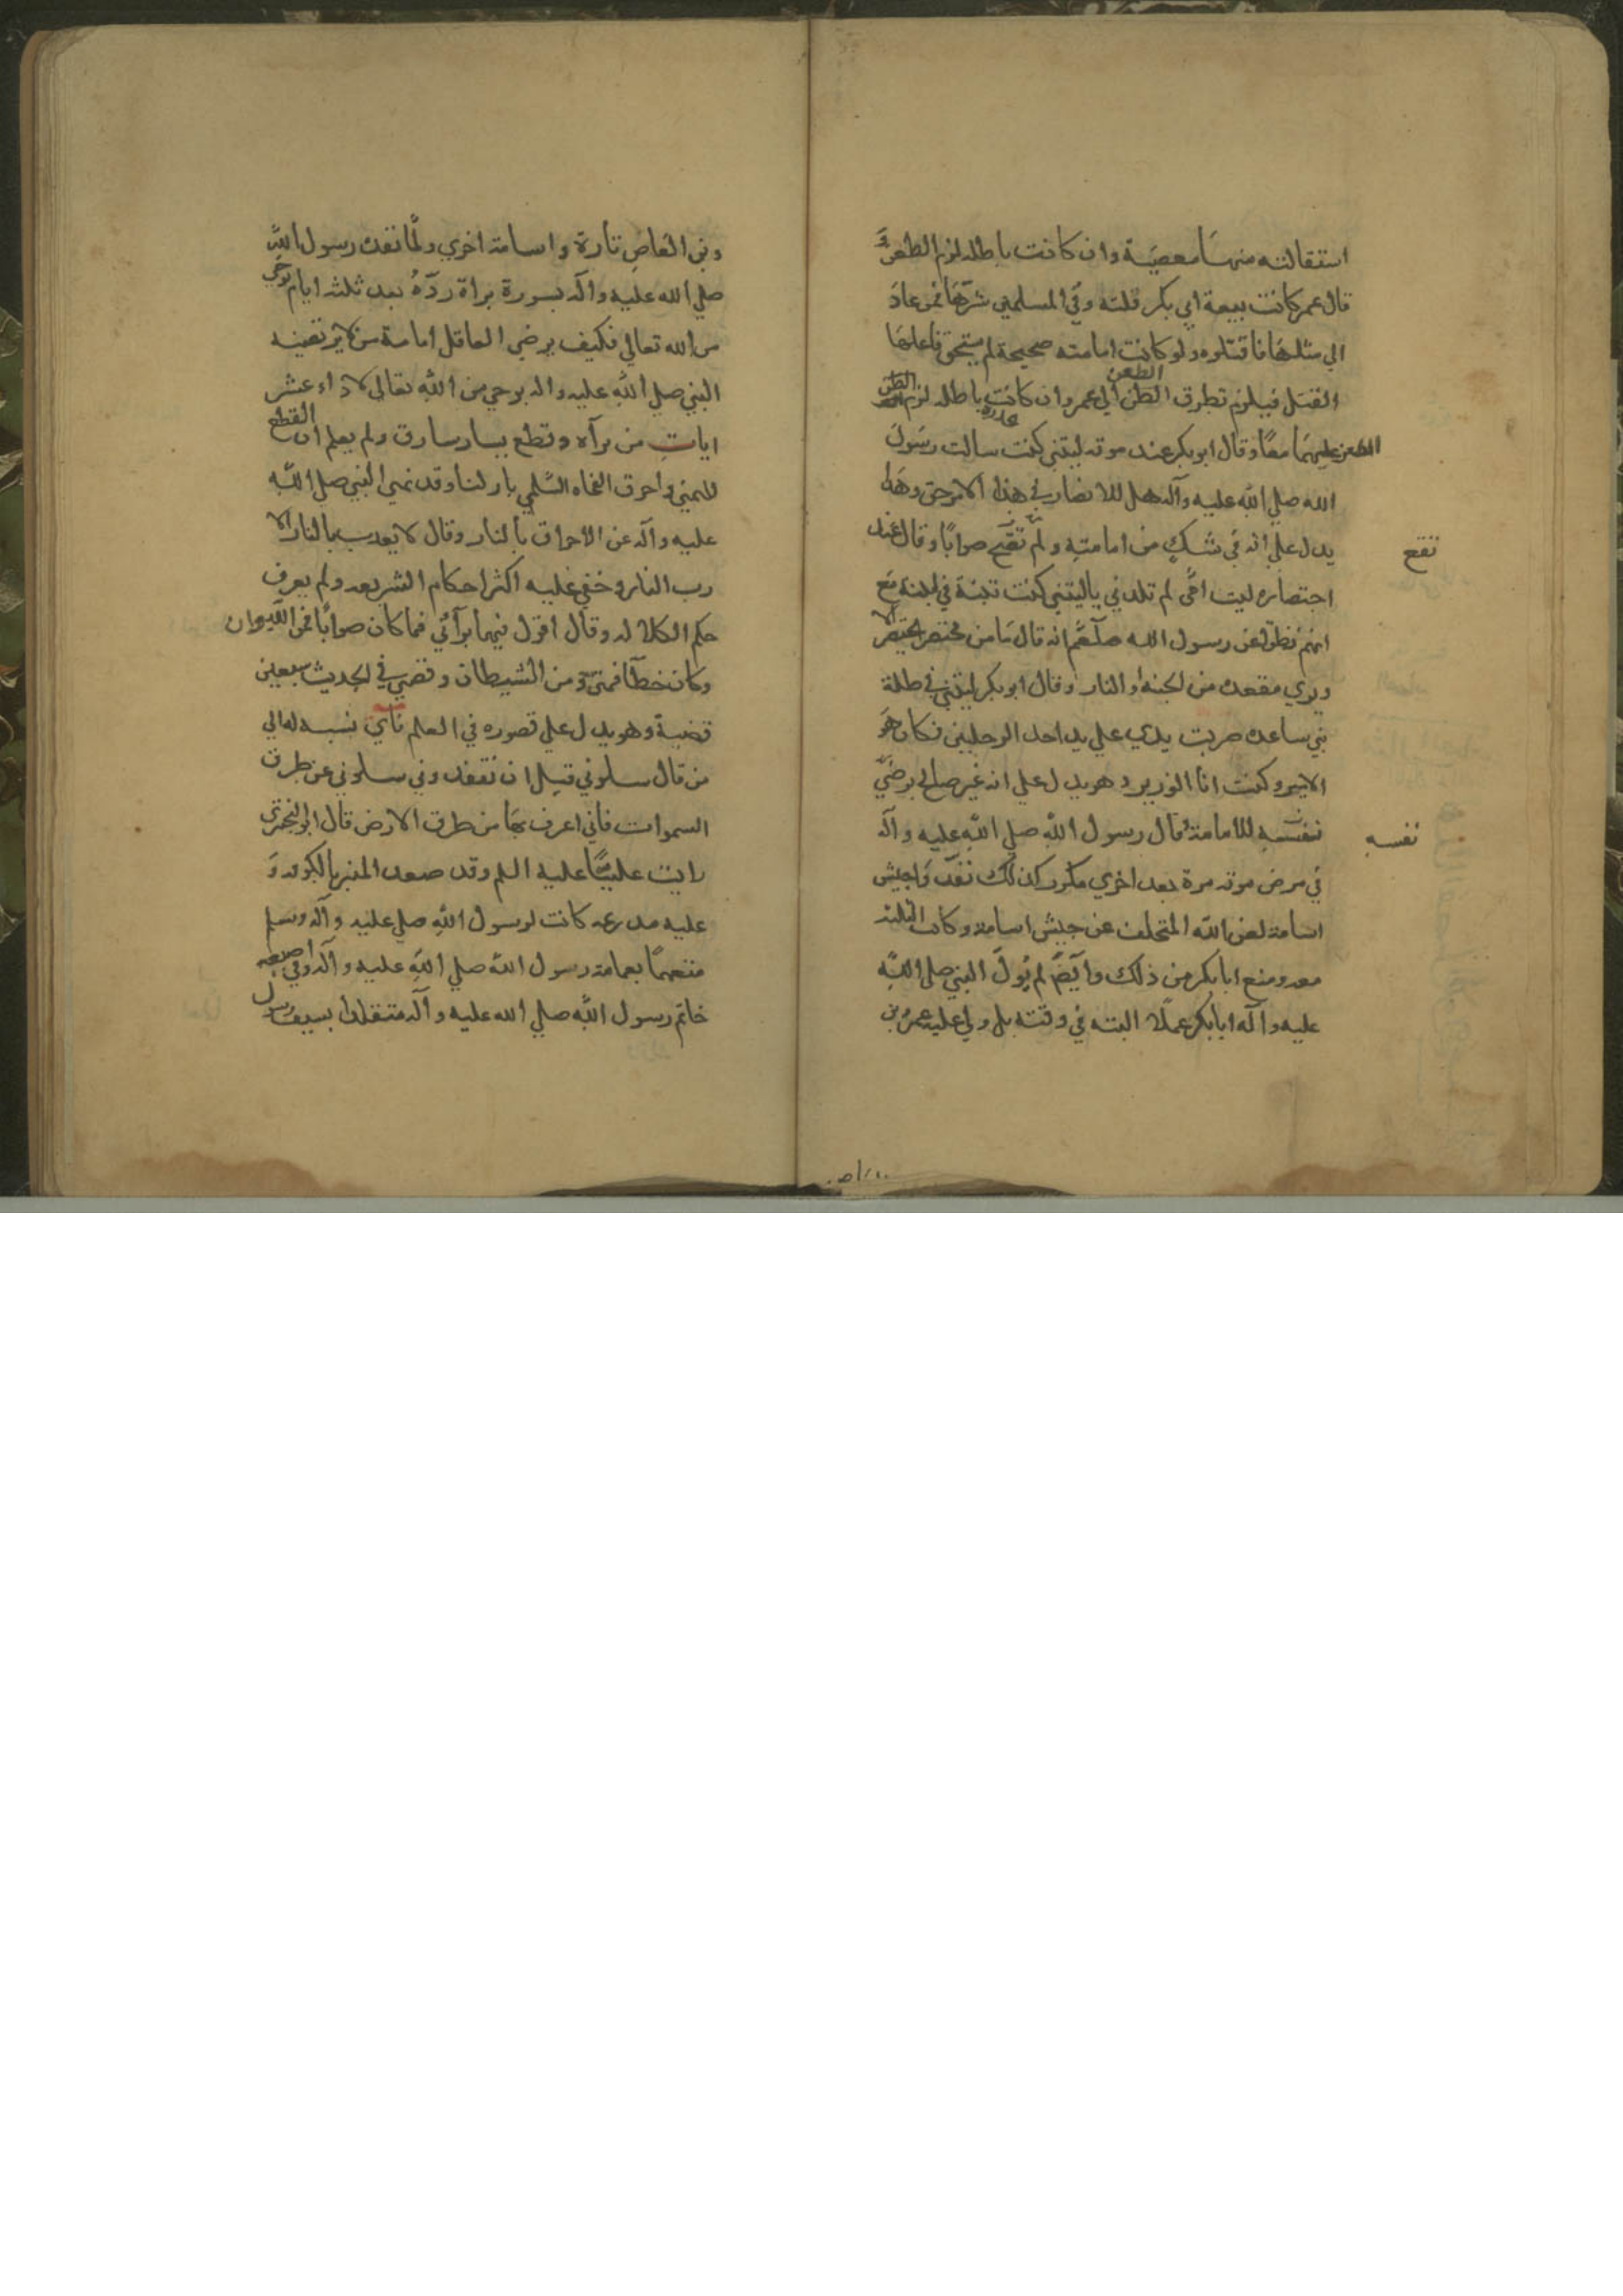 استقالته منها معصية وان كانت باطله لزم الطعن و
قال عمر كانت بيعة ابي بكر فلته وقي المسلمين شرها فمن عاد
الي مثلها فاقتلوه ولو كانت امامته صحيحة لم يستحق فاعلها
القتل فيلزم تطرق الطعن الي عمر وان كانت باطله لزم
الطعن عليهما معًا وقال ابو بكر عند موته ليتني كنت سالت رسول
الله صلي الله عليه وآله هل للانصار في هذا الامر حق وهذا
يدل علي انه في شك من امامته ولم تقع صوابًا وقال عند
احتضاره ليت امّي لم تلدني ياليتني كنت تبنة في لبنة مع
انهم نقلوا عن رسول الله صلعم انه قال ما من محتضر يحتضر الا
ويري مقعده من الجنة او النار وقال ابو بكر ليتني في ظلة
بني ساعده ضربت يدي علي يد احد الرجلين فكان هو
الامير وكنت انا الوزير وهو يدل علي انه غير صالح يرضي
نفسه للامامة قال رسول الله صلي الله عليه وآله
في مرض موته مرة بعد اخري مكررا كذلك نفذوا جيش
اسامة لعن الله المتخلف عن جيش اسامة وكان الثلثه
معه ومنع ابا بكر من ذلك وايضًا لم يول النبي صلي الله
عليه وآله ابا بكر عملًا البته في وقته بل ولي عليه عمرو بن
نقع
نفسه
وبن العاص تارة واسامة اخري ولمّا نفذه رسول الله
صلي الله عليه وآله بسورة براة ردّه بعد ثلثه ايام بوحي
من الله تعالي فكيف يرضي العاقل امامة من لا يرتضيه
النبي صلي الله عليه واله بوحي من الله تعالى لاداء عشر
ايات من برآه وقطع يسار سارق ولم يعلم ان القطع
لليمني واحرق الفجاه السّلمي بار لنا وقد نهي النبي صلي الله
عليه وآله عن الاحراق بالنار وقال لا يعذب بالنار الا
رب النار وخفي عليه اكثر احكام الشريعه ولم يعرف
حكم الكلالة وقال اقول فيها برآئي فما كان صوابًا فمن الله وان
وكان خطآ فمني ومن الشيطان وقضي في الجد بسبعين
قضية وهو يدل علي قصوره في العلم فاي نسبة له الي
من قال سلوني قبل ان تفقدوني سلوني عن طرق
السموات فاني اعرف بها من طرق الارض قال ابو البختري
رايت عليًّا عليه السلم وقد صعد المنبر بالكوفه و
عليه مدرعه كانت لرسول الله صلي عليه وآله وسلم
متعممًا بعمامة رسول الله صلي الله عليه وآله وفي اصبعه
خاتم رسول الله صلي الله عليه وآله متقلدا بسيف رسول